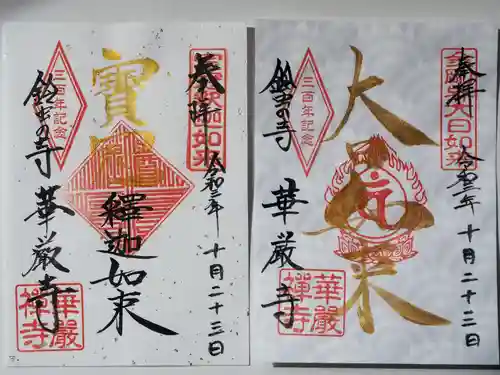 奉拝
令和三年十月二十三日
寶
釋迦如来
三百年記念
鈴虫の寺
華厳寺
華嚴禅寺
奉拝
令和三年十月二十三日
大
如来
三百年記念
鈴虫の寺
華厳寺
華嚴禅寺